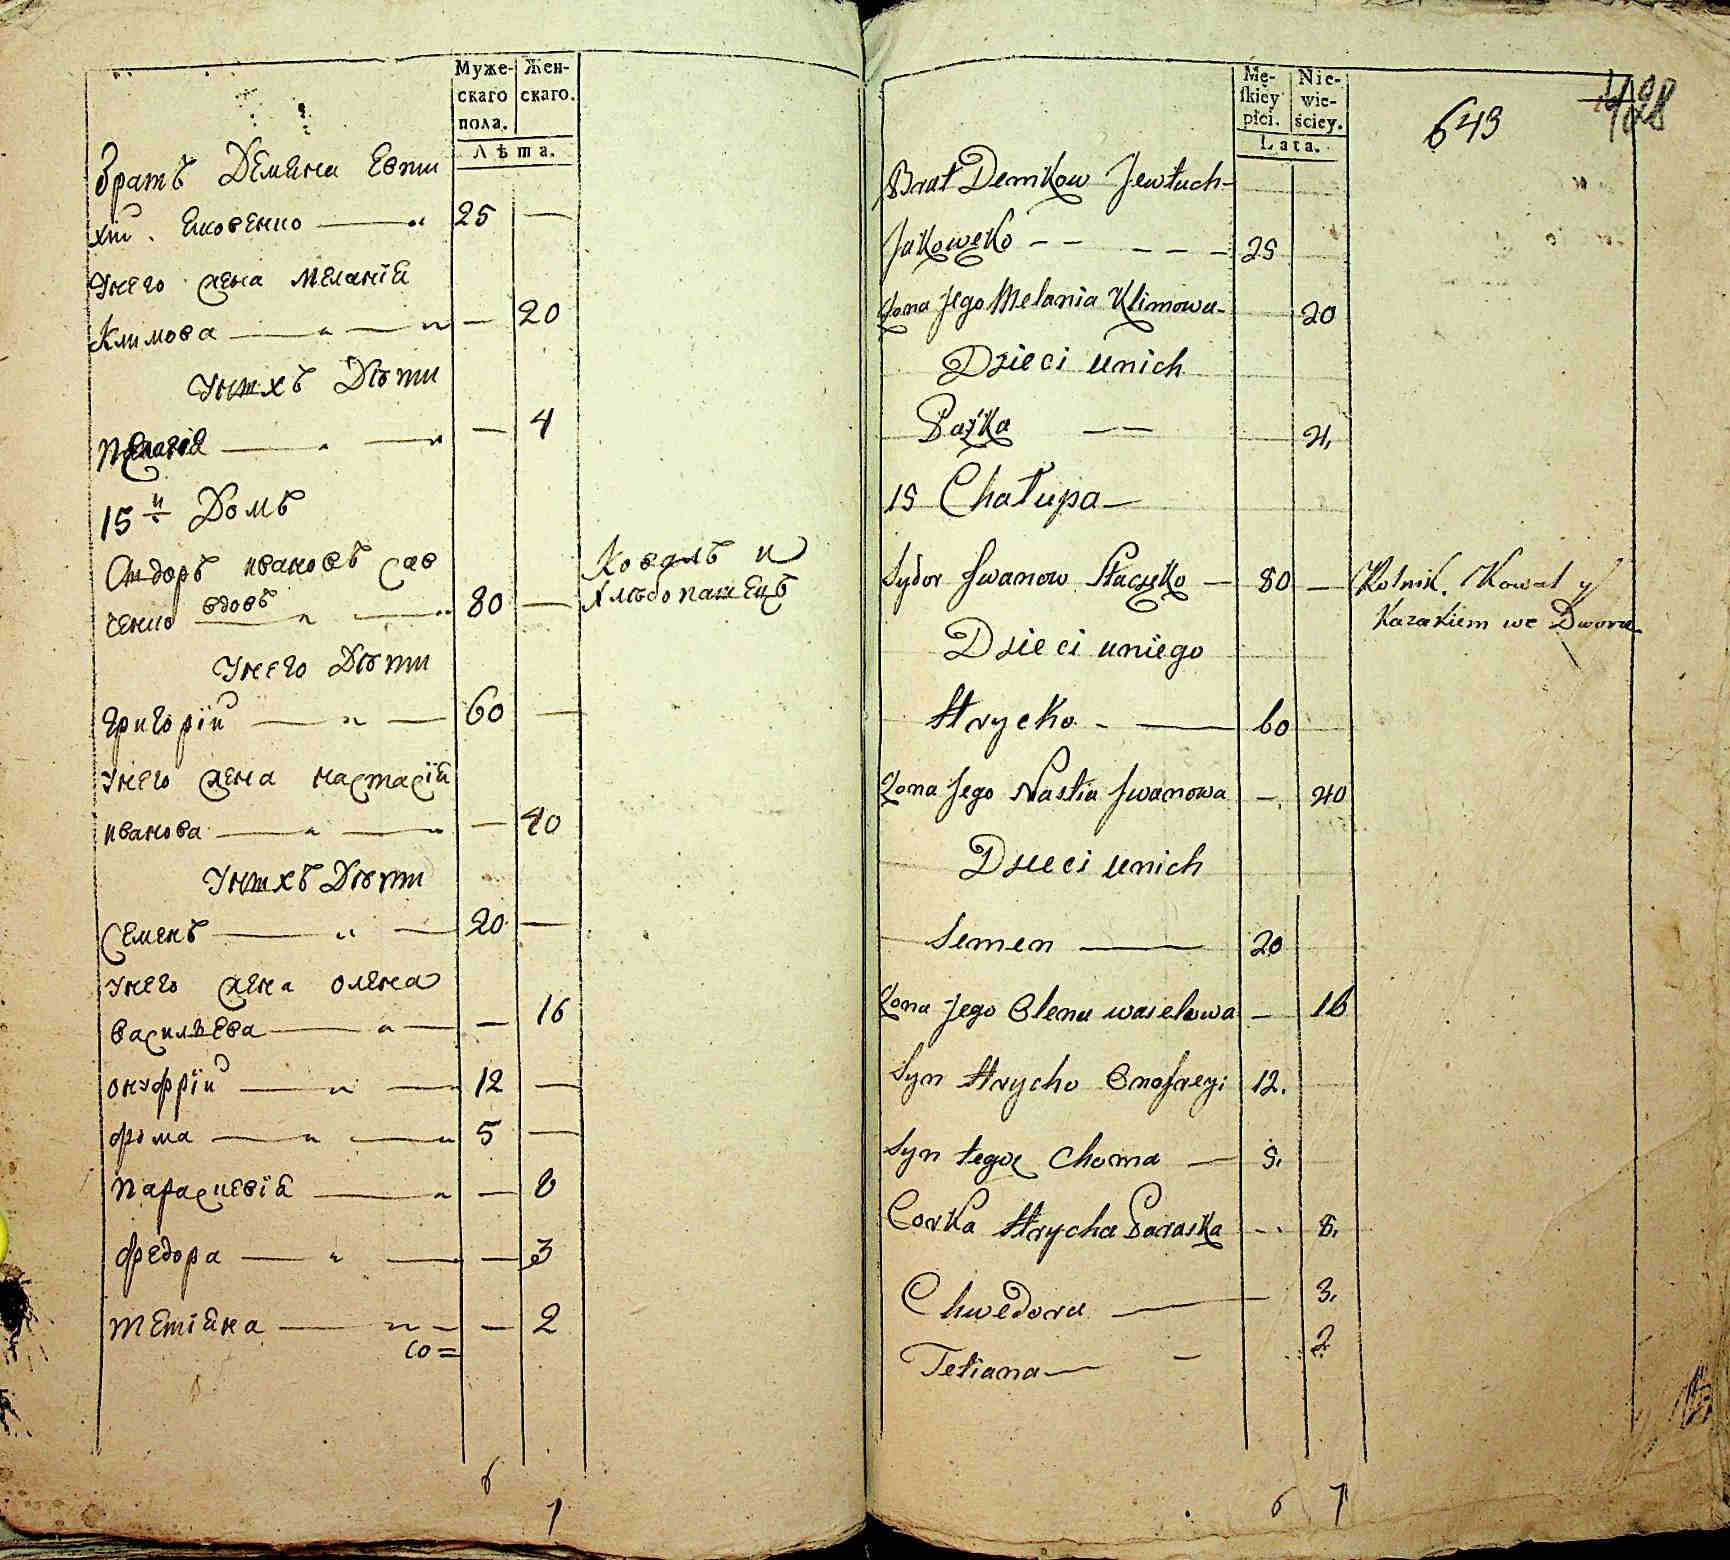 Муже- Жен-
скаго скаго.
пола.
Лѣта.
Братъ Демяна Евти
хій Яковенко — 25 —
Унего жена Меланія
Климова — — 20
Унихъ Дѣти
Пелагія — — 4
15й Домъ
Сидоръ Ивановъ Сав
ченко вдовъ — 80 —
Коваль и
хлѣбопашецъ
Унего Дѣти
Григорій — 60 —
Унего жена Настасія
Иванова — — 40
Унихъ Дѣти
Семенъ — 20 —
Унего жена Олена
Васильева — — 16
Онуфрій — 12 —
Фома — 5 —
Параскевія — — 8
Федора — — 3
Тетіяна — — 2
со=
6
7
Mę- Nie-
skiey wie-
płci. ściey.
Lata.
643
Brat Demkow Jewtuch
Jakowęko — 25
Żona Jego Melania Klimowa — 20
Dzieci unich
Paźka — 4.
15 Chałupa —
Sydor Jwanow — 80 — Rolnik. Kowal y
Kazakiem we Dworu
Dzieci uniego
Hrycko — 60
Żona Jego Nastia Jwanowa — 40
Dzieci unich
Semen — 20
Żona Jego Olena waselowa — 16
Syn Hrycko Onofreyi 12.
Syn tegoż Choma — 5.
Corka Hrycka Paraska — 8.
Chwedora — 3.
Tetiana — 2.
6 7